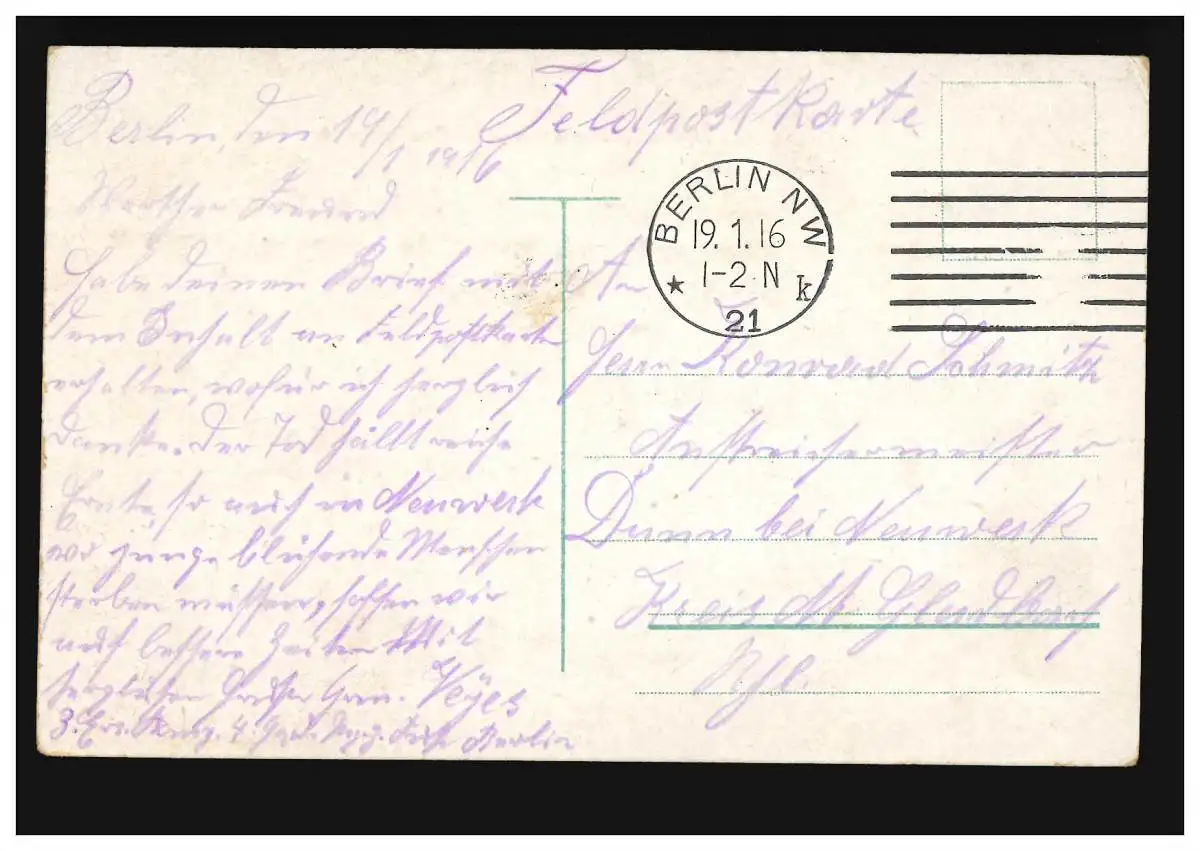 Berlin, den 19/1 1916
Feldpostkarte
Werther Freund
Habe deinen Brief mit
dem Inhalt an Feldpostkarte
erhalten, wofür ich herzlich
danke. Der Tod hällt reiche
Ernte, so auch in Neuwerk
wo junge blühende Menschen
sterben müssen, hoffen wir
auf bessere Zeiten Mit
herzlichen Gruß Gren.
3. Ers. Komp. 4. Gard. Regt. Fuß Berlin
BERLIN NW
19. 1. 16
1-2 N
k
21
An
Herrn Konrad Schmitz
Anstreichermeister
Dünn bei Neuwerk
Kreis M Gladbach
Rhl.